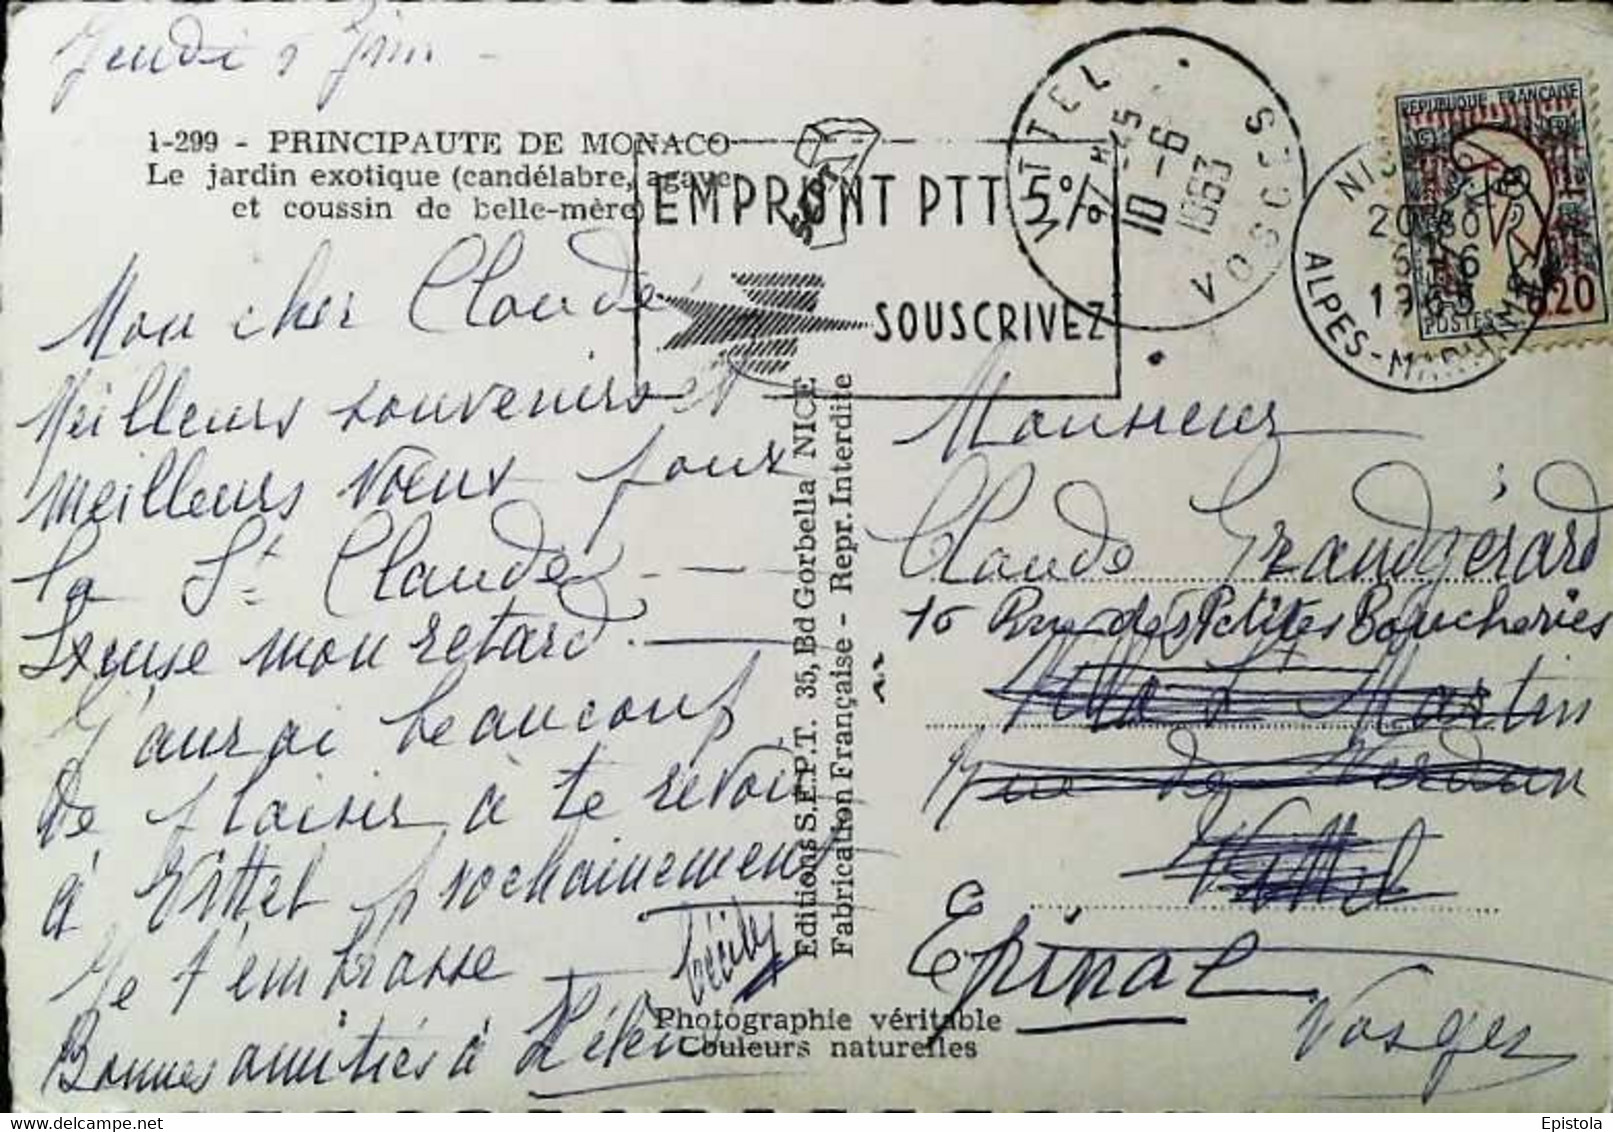 Jeudi 5 Juin -
1-299 - PRINCIPAUTE DE MONACO
Le jardin exotique (candélabre, agave
et coussin de belle-mère)
EMPRUNT PTT 5%
SOUSCRIVEZ
VITTEL
9H45
10-6
1963
VOSGES
ALPES-MARITIMES
REPUBLIQUE FRANÇAISE
POSTES
0.20
Mon cher Claude
Meilleurs souvenirs et
meilleurs vœux pour
la St Claude
Excuse mon retard.
J'aurai beaucoup
de plaisir à te revoir
à Vittel prochainement
Je t'embrasse
Cécily
Bonnes amitiés à Hélène
Editions S.E.P.T. 35, Bd Gorbella NICE
Fabrication Française - Repr. Interdite
Photographie véritable
Couleurs naturelles
Monsieur
Claude Grandgérard
10 Rue des Petites Boucheries
Villa St Martin
Rue de Verdun
Vittel
Epinal
Vosges
Epistola